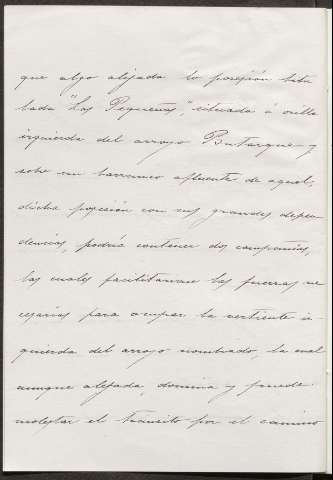 que algo alejada la posesión titu
lada "Los Pequeños", situada á orilla
izquierda del arroyo Butarque y
sobre un barranco afluente de aquel,
dicha posesión con sus grandes depen
dencias, podría contener dos compañías,
las cuales facilitarian las fuerzas ne
cesarias para ocupar la vertiente iz
quierda del arroyo nombrado, la cual
aunque alejada, domina y puede
molestar el tránsito por el camino